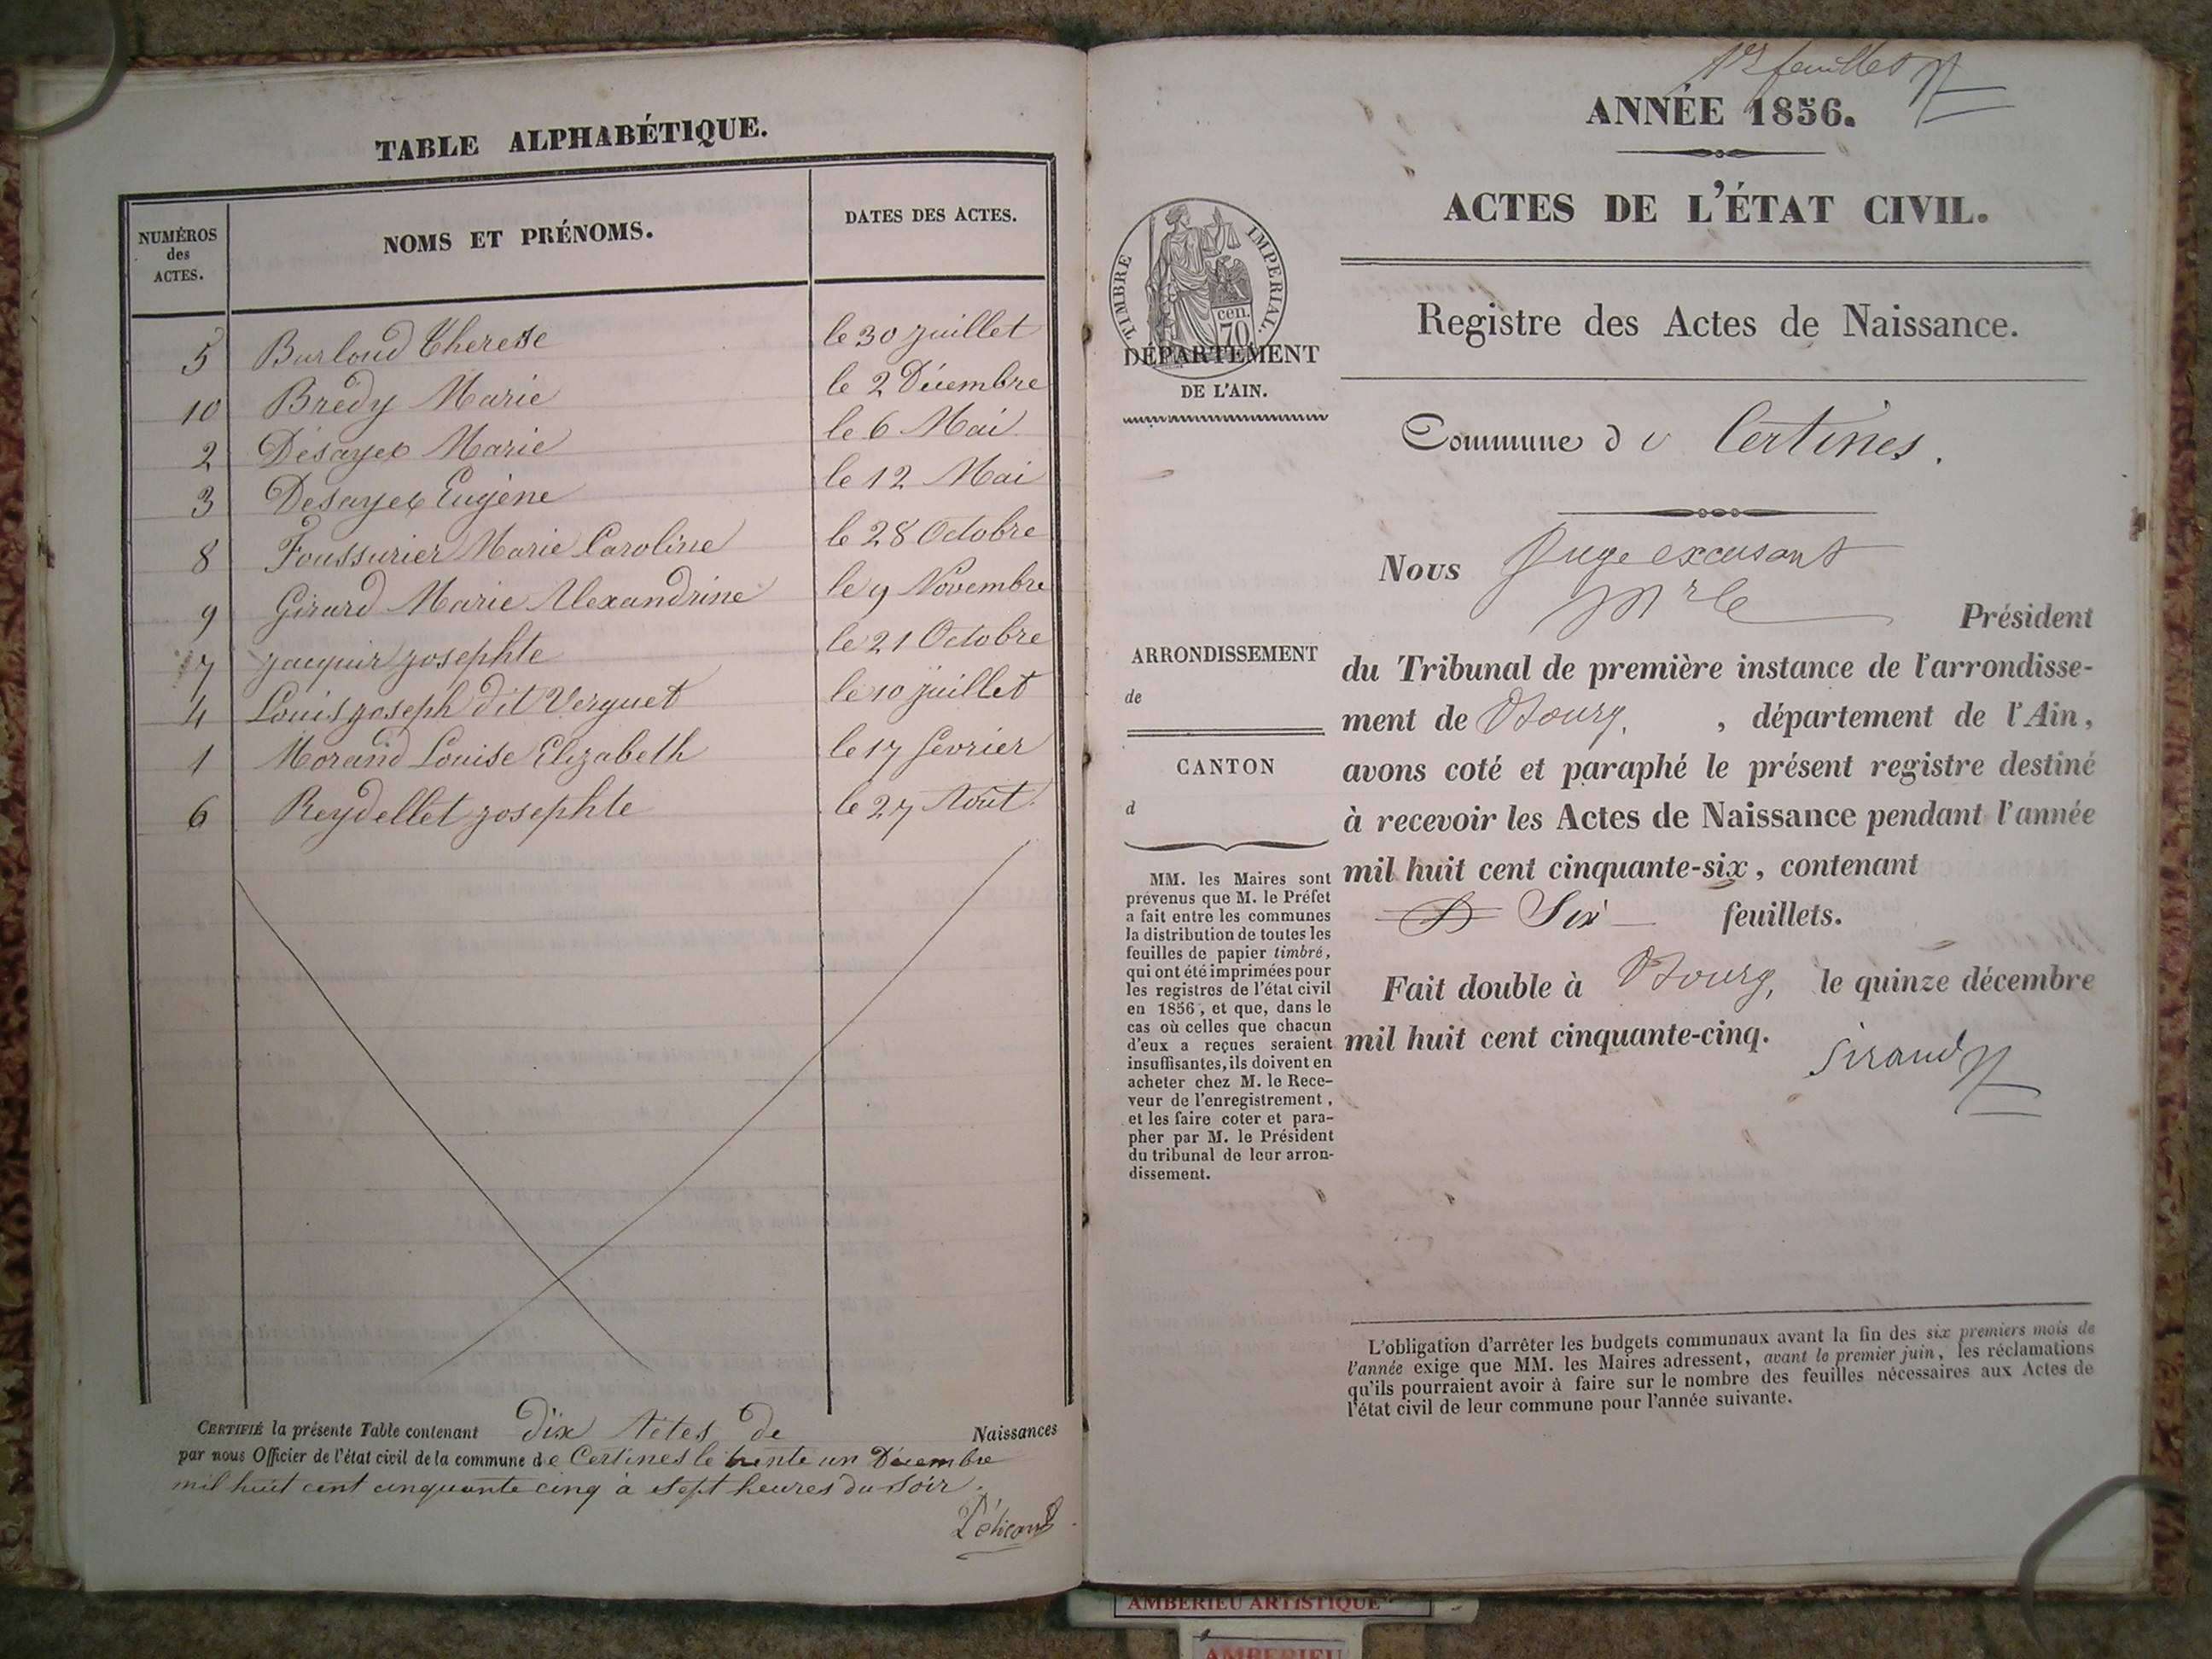 TABLE ALPHABÉTIQUE.
NUMÉROS des ACTES.
NOMS ET PRÉNOMS.
DATES DES ACTES.
5 Burloud Therese le 30 juillet
10 Bredy Marie le 2 Décembre
2 Désayes Marie le 6 Mai
3 Desayes Eugène le 12 Mai
8 Foussurier Marie Caroline le 28 Octobre
9 Girard Marie Alexandrine le 9 Novembre
7 Jacquir Josephte le 21 Octobre
4 Louis Joseph dit Verguet le 10 juillet
1 Morand Louise Elizabeth le 17 fevrier
6 Reydellet Josephte le 27 Aout.
CERTIFIÉ la présente Table contenant dix Actes de Naissances
par nous Officier de l'état civil de la commune de Certines le trente un Décembre
mil huit cent cinquante cinq à sept heures du soir.
1er feuillet
ANNÉE 1856.
ACTES DE L'ÉTAT CIVIL.
TIMBRE IMPERIAL.
cen.
70
DÉPARTEMENT
DE L'AIN.
Registre des Actes de Naissance.
Commune de Certines.
ARRONDISSEMENT
de
CANTON
d
MM. les Maires sont
prévenus que M. le Préfet
a fait entre les communes
la distribution de toutes les
feuilles de papier timbré,
qui ont été imprimées pour
les registres de l'état civil
en 1856, et que, dans le
cas où celles que chacun
d'eux a reçues seraient
insuffisantes, ils doivent en
acheter chez M. le Rece-
veur de l'enregistrement,
et les faire coter et para-
pher par M. le Président
du tribunal de leur arron-
dissement.
Nous Juge excusant
Mr le Président
du Tribunal de première instance de l'arrondisse-
ment de Bourg, , département de l'Ain,
avons coté et paraphé le présent registre destiné
à recevoir les Actes de Naissance pendant l'année
mil huit cent cinquante-six, contenant
Six feuillets.
Fait double à Bourg, le quinze décembre
mil huit cent cinquante-cinq.
Sirand
L'obligation d'arrêter les budgets communaux avant la fin des six premiers mois de
l'année exige que MM. les Maires adressent, avant le premier juin, les réclamations
qu'ils pourraient avoir à faire sur le nombre des feuilles nécessaires aux Actes de
l'état civil de leur commune pour l'année suivante.
AMBERIEU ARTISTIQUE
AMBERIEU